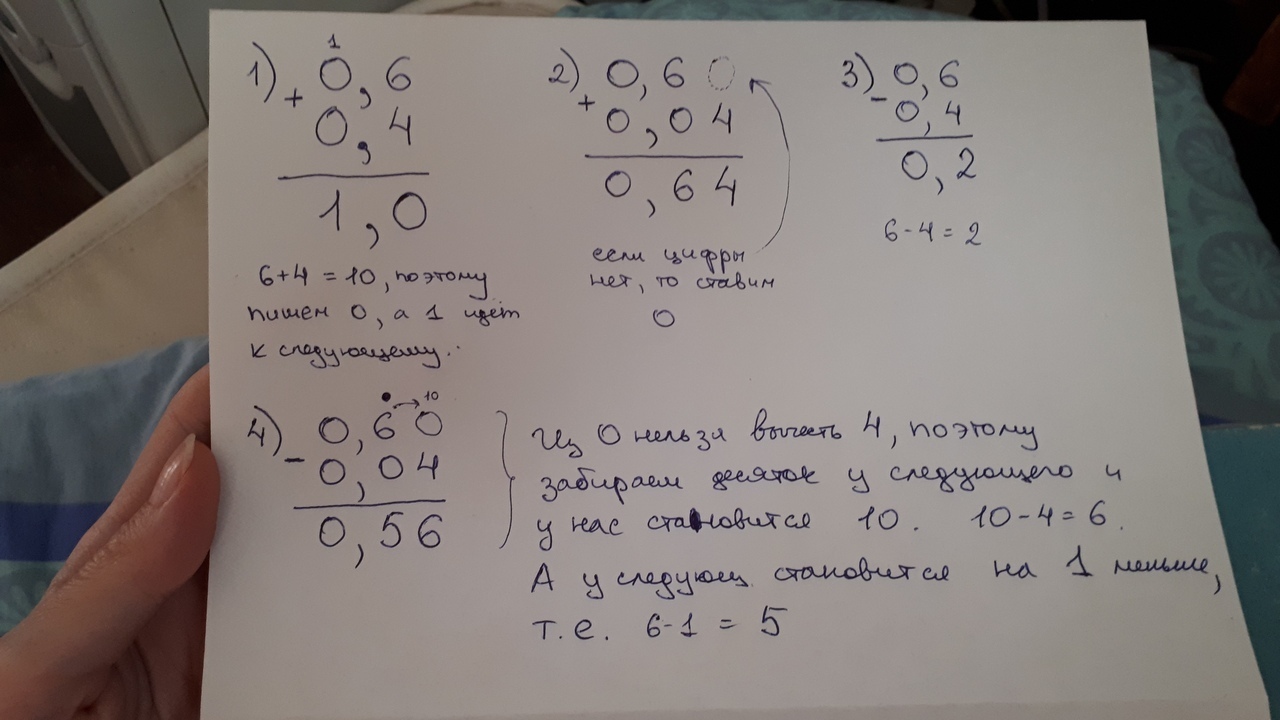 1) 1
+ 0,6
0,4
1,0
6+4=10, поэтому
пишем 0, а 1 идёт
к следующему.
2) 0,60
+ 0,04
0,64
если цифры
нет, то ставим
0
3) 0,6
- 0,4
0,2
6-4=2
• → 10
4) 0,60
- 0,04
0,56
Из 0 нельзя вычесть 4, поэтому
забираем десяток у следующего и
у нас становится 10. 10-4=6.
А у следующ. становится на 1 меньше,
т.е. 6-1 = 5